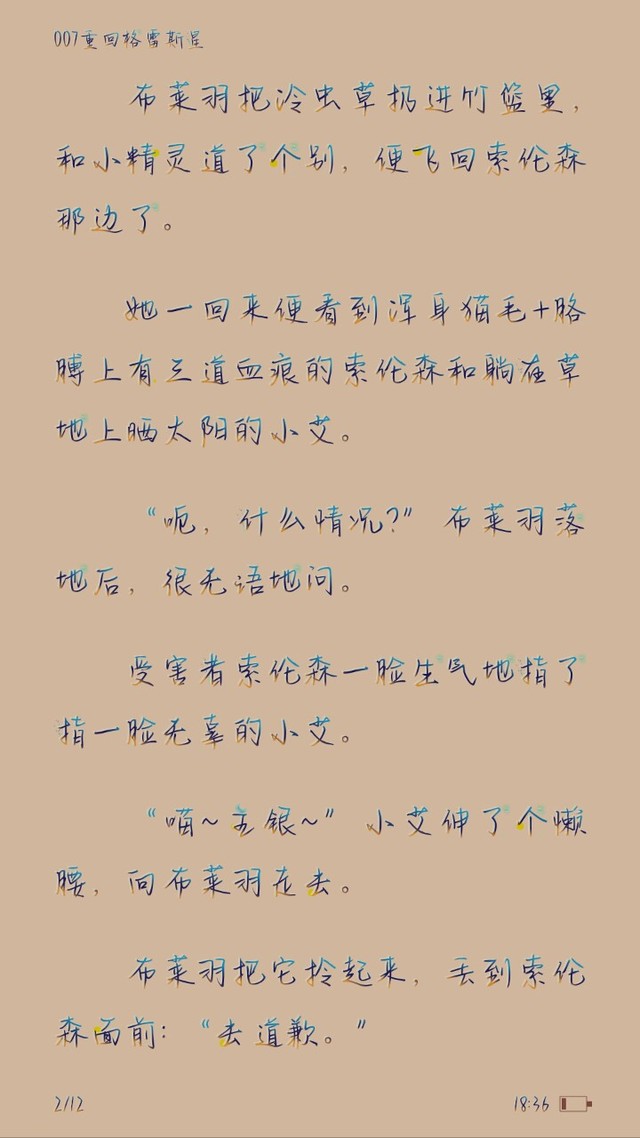 007重回格雷斯星
布莱羽把冷虫草扔进竹篮里，
和小精灵道了个别，便飞回索伦森
那边了。
她一回来便看到浑身猫毛+胳
膊上有三道血痕的索伦森和躺在草
地上晒太阳的小艾。
“呃，什么情况？”布莱羽落
地后，很无语地问。
受害者索伦森一脸生气地指了
指一脸无辜的小艾。
“喵~主银~”小艾伸了个懒
腰，向布莱羽走去。
布莱羽把它拎起来，丢到索伦
森面前：“去道歉。”
2/12
18:36